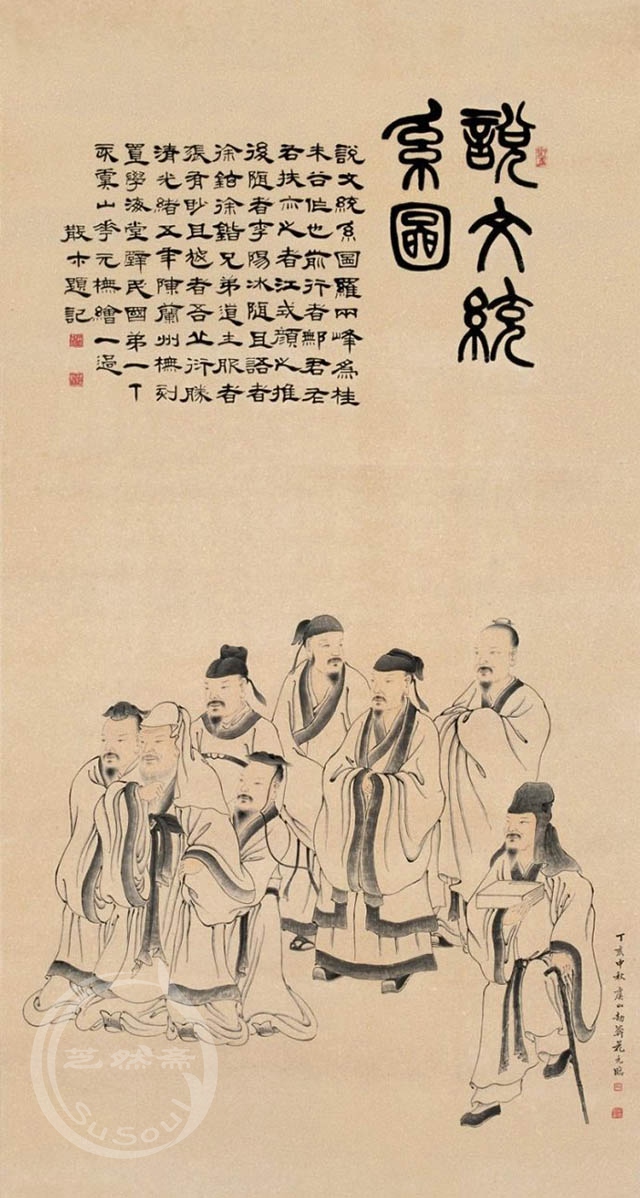 說文統
系圖
說文統系圖羅兩峰為桂
未谷作也前行者鄦君老
若扶之者江式顏之推
後隨者李陽冰隨且語者
徐鉉徐鍇兄弟道士服者
張有眇且者吾丘衍勝
清光緒五年陳蘭州橅刻
置學海堂民國第一丁
亥虞山元橅繪一過
散木題記
丁亥中秋虞山元臨
芝然斋
SuSoul